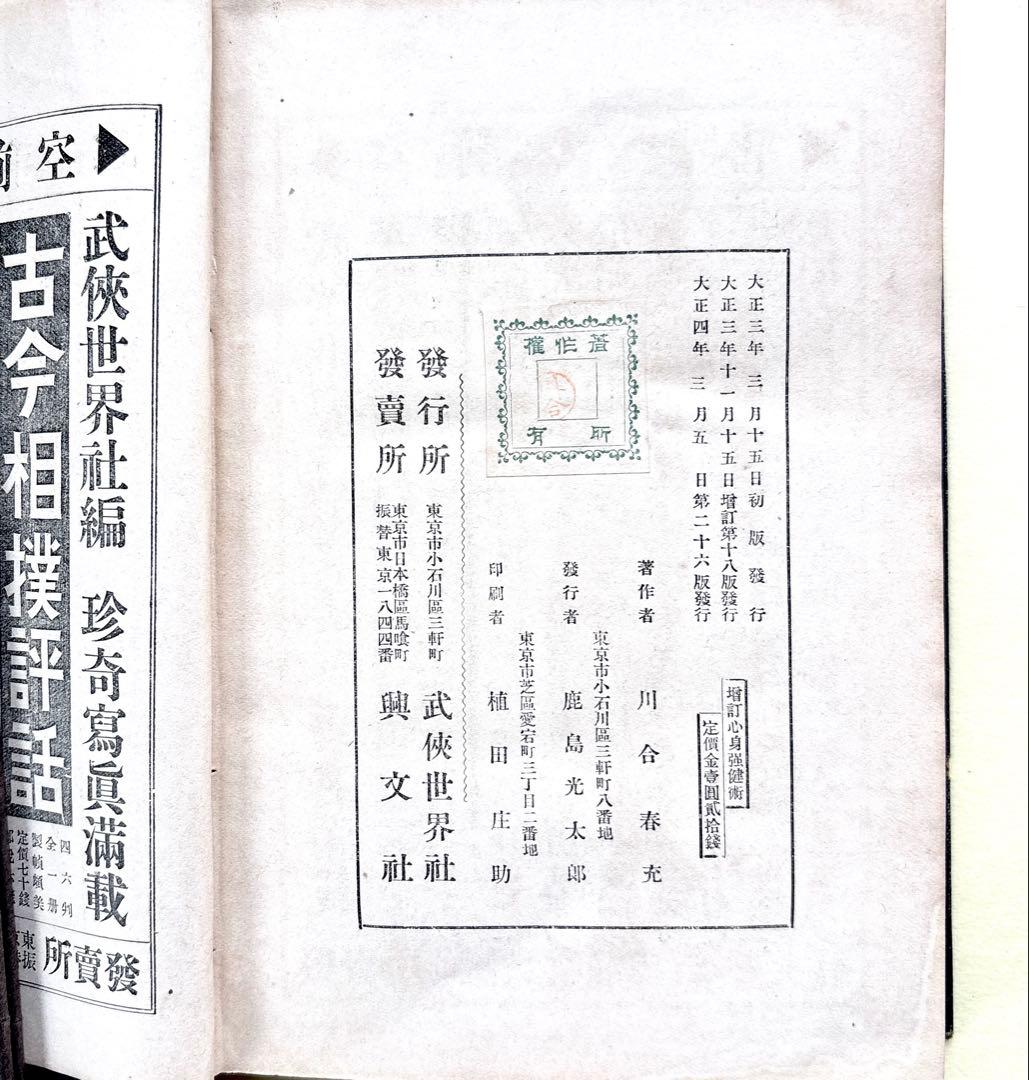 大正三年三月十五日初版發行
大正三年十一月十五日增訂第十八版發行
大正四年三月五日第二十六版發行
增訂心身强健術
定價金壹圓貳拾錢
著作權
所有
著作者 川合春充
東京市小石川區三軒町八番地
發行者 鹿島光太郎
東京市芝區愛宕町三丁目二番地
印刷者 植田庄助
發行所 東京市小石川區三軒町 武俠世界社
發賣所 東京市日本橋區馬喰町 興文社
振替東京一八四四番
空前
武俠世界社編 珍奇寫眞滿載
古今相撲評話
四六判
全一册
製幀頗美
定價七十錢
發賣所
東
振